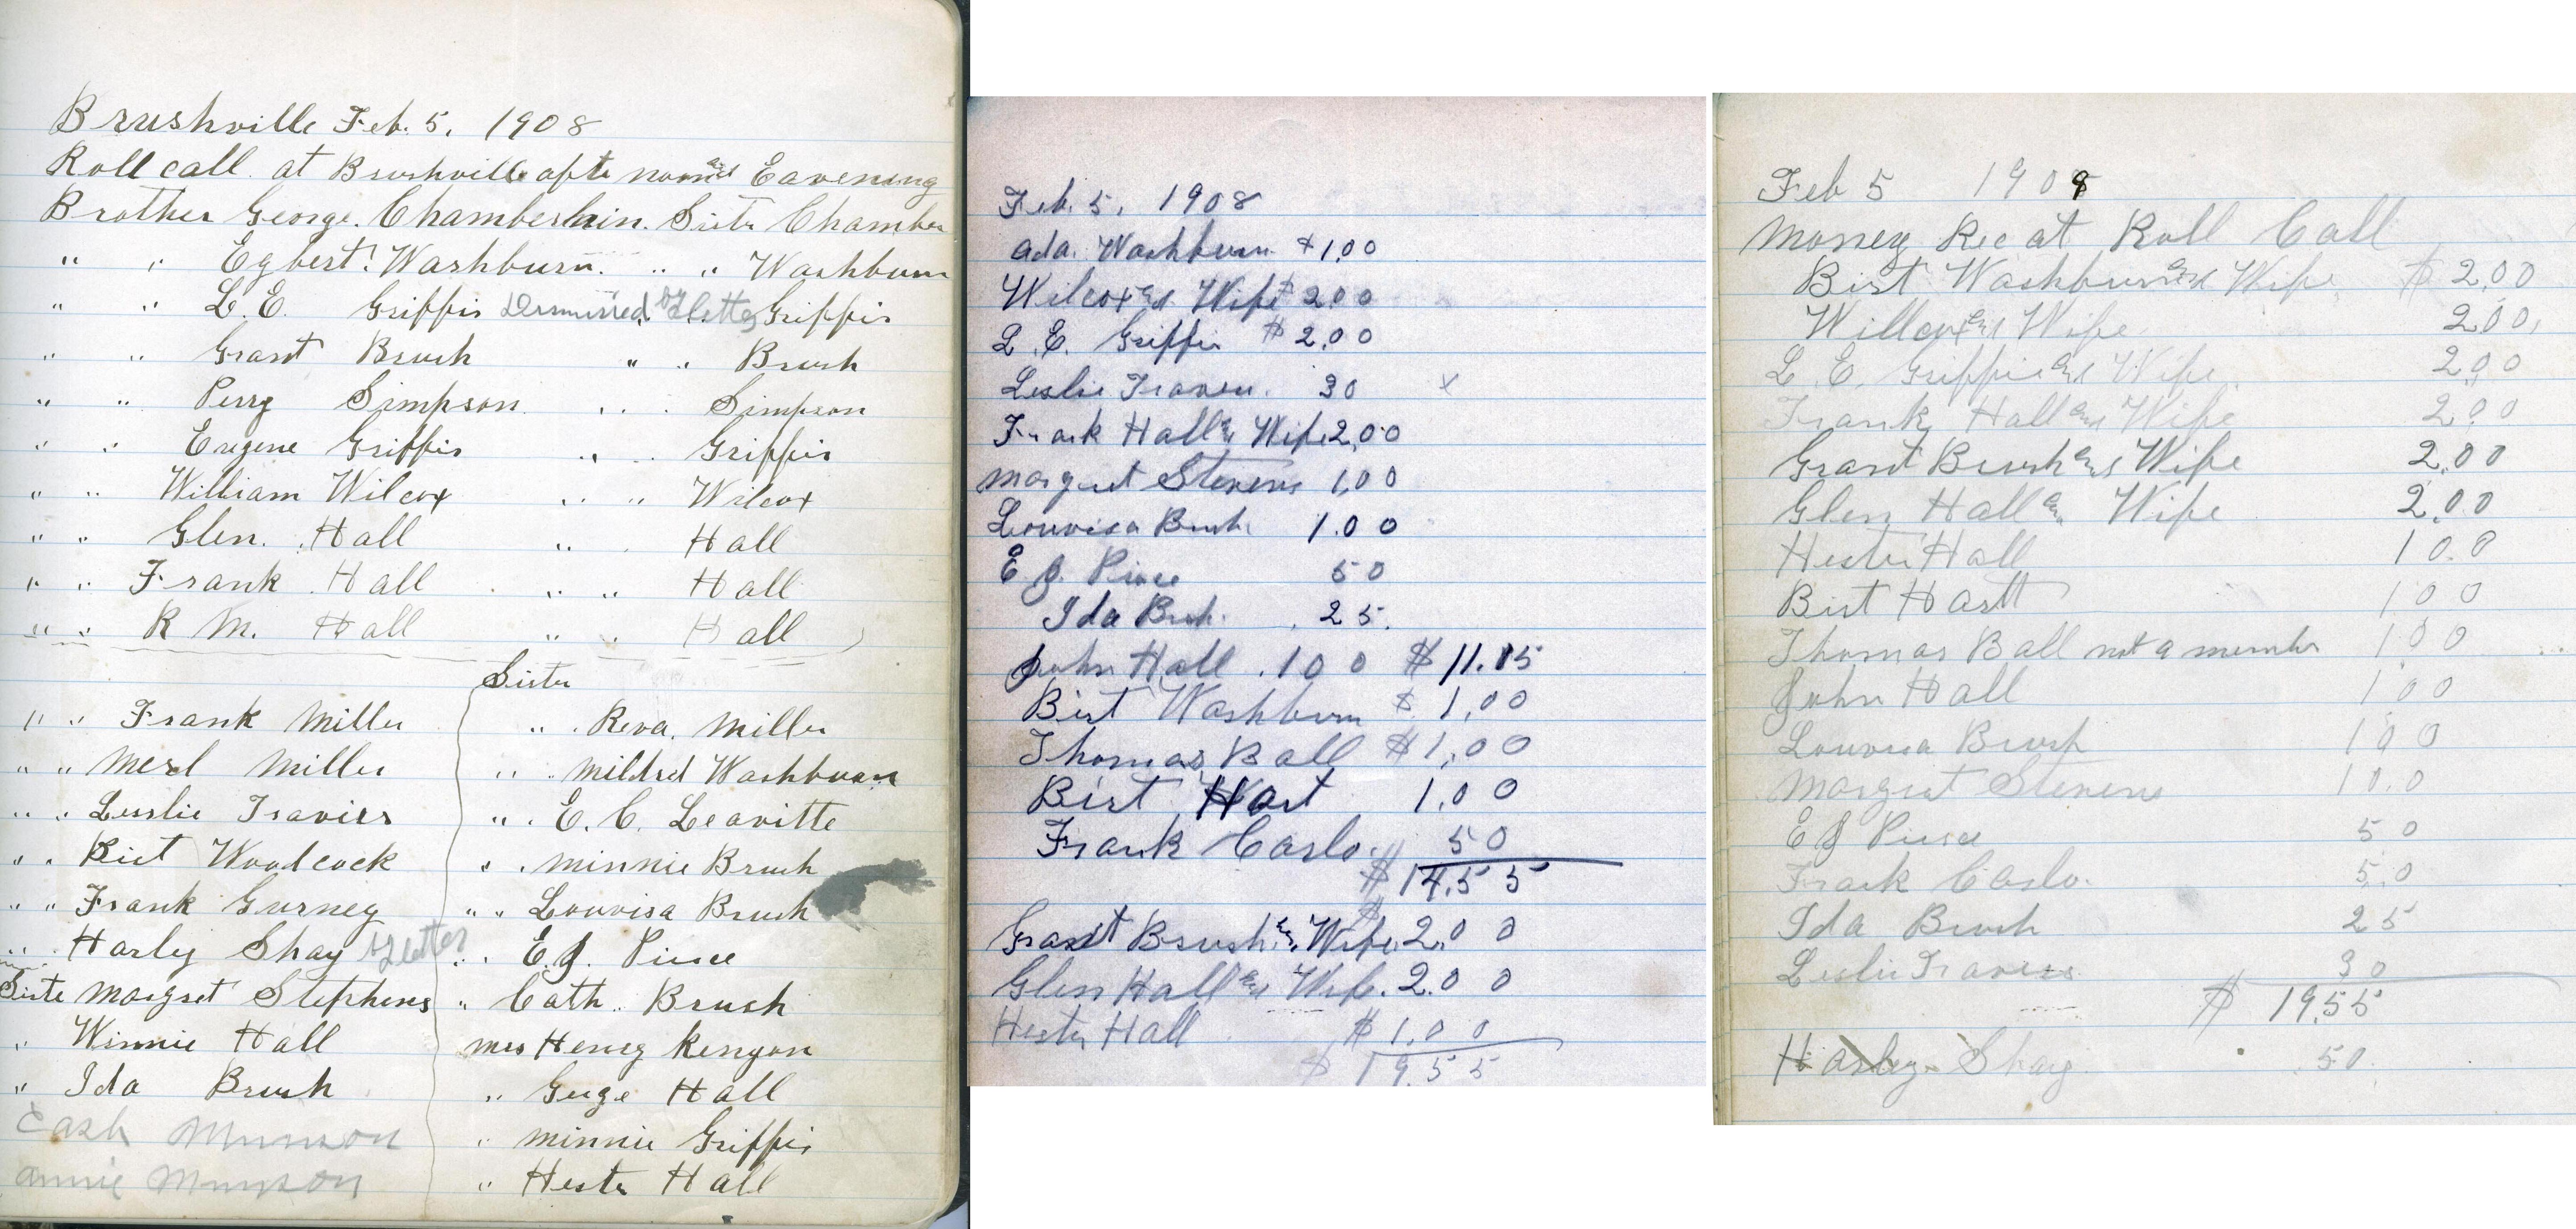 Brushville Feb. 5, 1908
Roll call at Brushville afte noon and Eavening
Brother George. Chamberlain. Sistr Chamber
" " Egbert. Washburn. " " Washburn
" " L. E. Griffis Dismissed by letter " Griffis
" " Grant Brush " " Brush
" " Perry Simpson " " Simpson
" " Eugene Griffis " " Griffis
" " William Wilcox " " Wilcox
" " Glen. Hall " " Hall
" " Frank Hall " " Hall
" " R M. Hall " " Hall
Sister
" " Frank Miller " Reva. Miller
" " Merl Miller " " Mildred Washburn
" " Lesslie Traviss " " E. C. Leavitte
" " Birt Woodcock " " Minnie Brush
" " Frank Gurney " " Louvisa Brush
" " Harley Shay by letter " " E. J. Pierce
Siste Margret Stephens " Cath. Brush
" Winnie Hall Mrs Heney Kenyon
" Ida Brush " Guge Hall
Cash Munson " Minnie Griffis
Annie Munson " Hester Hall
Feb. 5, 1908
Ada. Washburn $1,00
Wilcox and Wife $200
L. E. Griffis $2,00
Leslie Travers. 30 x
Frank Hall and Wife 2,00
Margret Stevens 1,00
Louvisa Brush 1.00
E J. Pierce 50
Ida Brush. 25.
John Hall .100 $11.15
Birt Washburn $1,00
Thomas Ball $1,00
Birt Hart 1,00
Frank Caslo. 50
$14.55
Grant Brush and Wife. 2.00
Glen Hall and Wife. 2.00
Hester Hall $1,00
$19.55
Feb 5 1908
Money Rec at Roll Call
Birt Washburn and Wife $2,00
Willcox and Wife 2,00,
L. E. Griffis and Wife. 2,00
Frank Hall and Wife 2,00
Grant Brush and Wife 2,00
Glen Hall and Wife 2,00
Hester Hall 10.0
Birt Hartt 100
Thomas Ball not a member 1,00
John Hall 1,00
Louvisa Brush 100
Margret Stevens 10.0
E J Pierce 50
Frank Caslo. 5.0
Ida Brush 25
Leslie Travess 30
$19.55
Harley Shay .50.